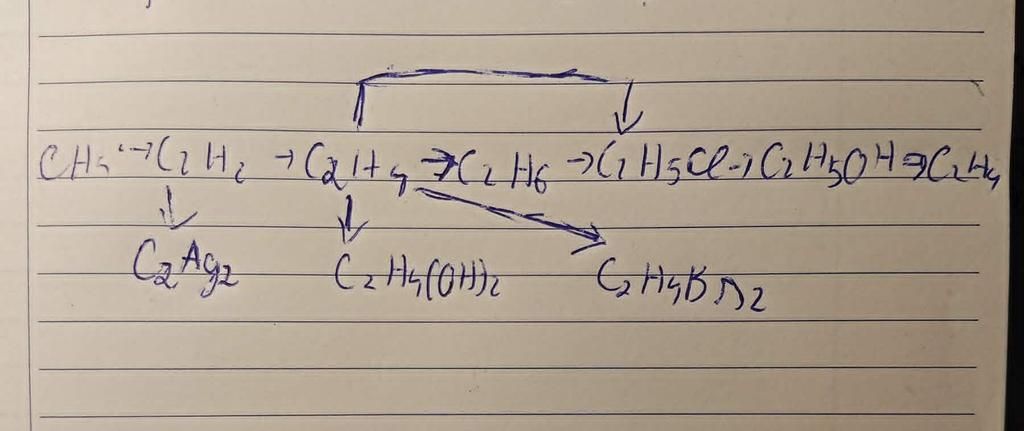 CH₄ → C₂H₂ → C₂H₄ → C₂H₆ → C₂H₅Cl → C₂H₅OH → C₂H₄
C₂Ag₂ C₂H₄(OH)₂ C₂H₄Br₂